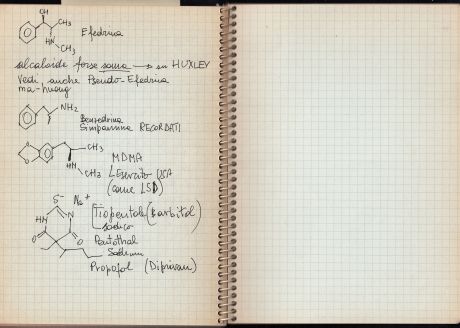 OH
CH3
HN
CH3
Efedrina
alcaloide forse soma → su HUXLEY
Vedi anche Pseudo-Efedrina
ma-huang
NH2
Benzedrina
Simpamina RECORDATI
O
O
CH3
HN
CH3
MDMA
Esercito USA
(come LSD)
S-
Na+
HN
N
O
O
Tiopentale (Barbitol)
sodico
Pentothal
Sodium
Propofol (Diprivan)